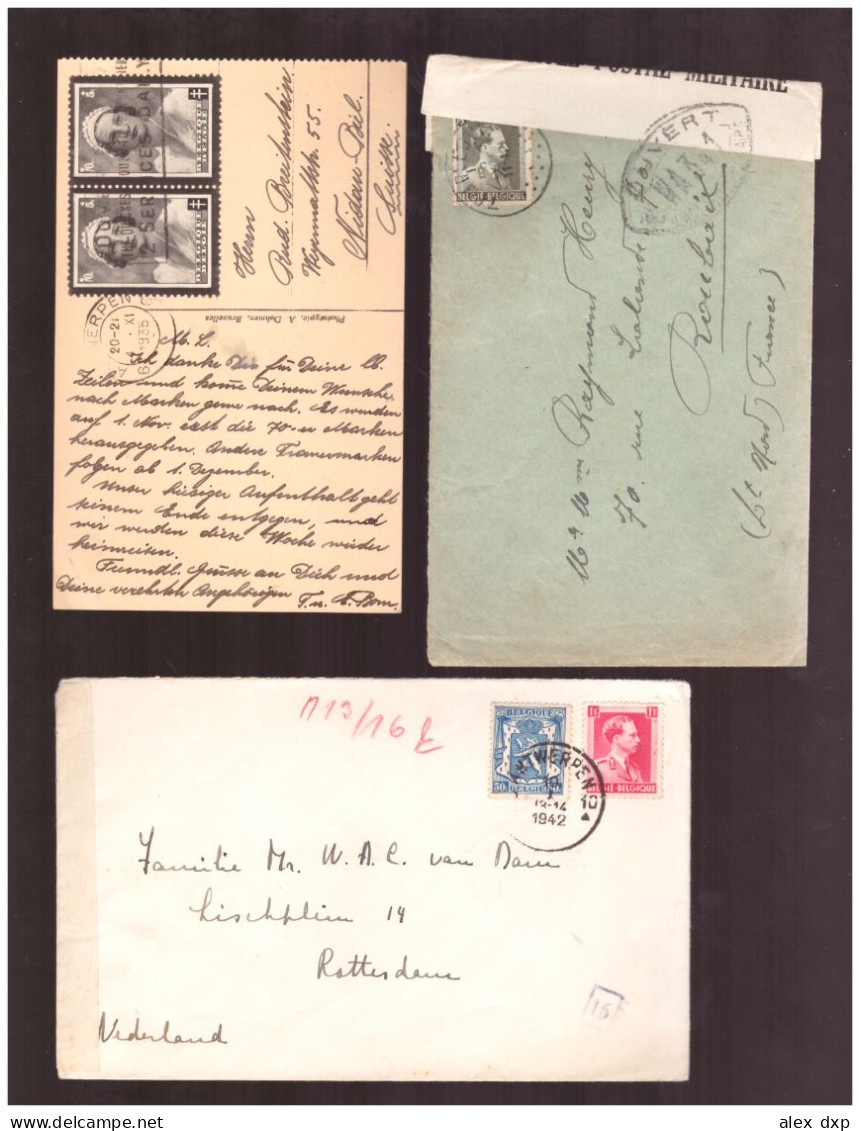 +5.
70.
BELGIQUE
BELGIË
+5.
70.
BELGIQUE
BELGIË
20-21
4. XI
1935
Herrn
Rud. Breitenstein
Weyermattstr. 55.
Nidau-Biel
Suisse
Phototypie, A. Dohmen, Bruxelles
M. L.
Ich danke Dir für Deine lb.
Zeilen und kom̄e Deinem Wunsche
nach Marken gerne nach. Es wurden
auf 1. Nov. erst die 70-er Marken
herausgegeben. Andere Trauermarken
folgen ab 1. Dezember.
Unser hiesiger Aufenthalt geht
seinem Ende entgegen, und
wir werden diese Woche wieder
heimreisen.
Freundl. Grüsse an Dich und
Deine verehrten Angehörigen
POSTAL MILITAIRE
OUVERT
BELGIE-BELGIQUE
Mr & Mme Raymond Henry
70. rue
Roubaix
(Nord) France)
N13/16
BELGIQUE
50c
BELGIE
1F 1F
BELGIE-BELGIQUE
ANTWERPEN
10
13-14
1942
10
Familie Mr. W. A. C. van Dam
14
Rotterdam
Nederland
16
alex_dxp